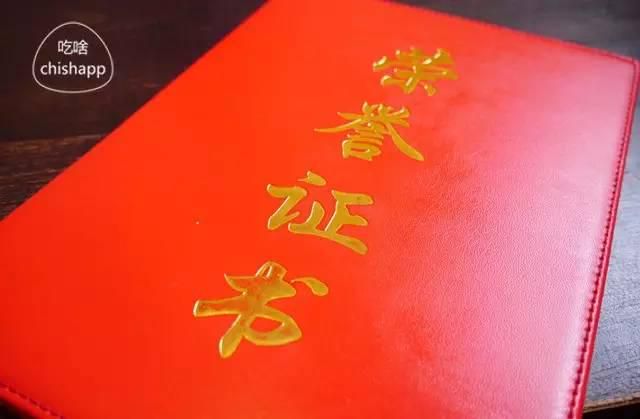 吃啥
chishapp
荣誉证书